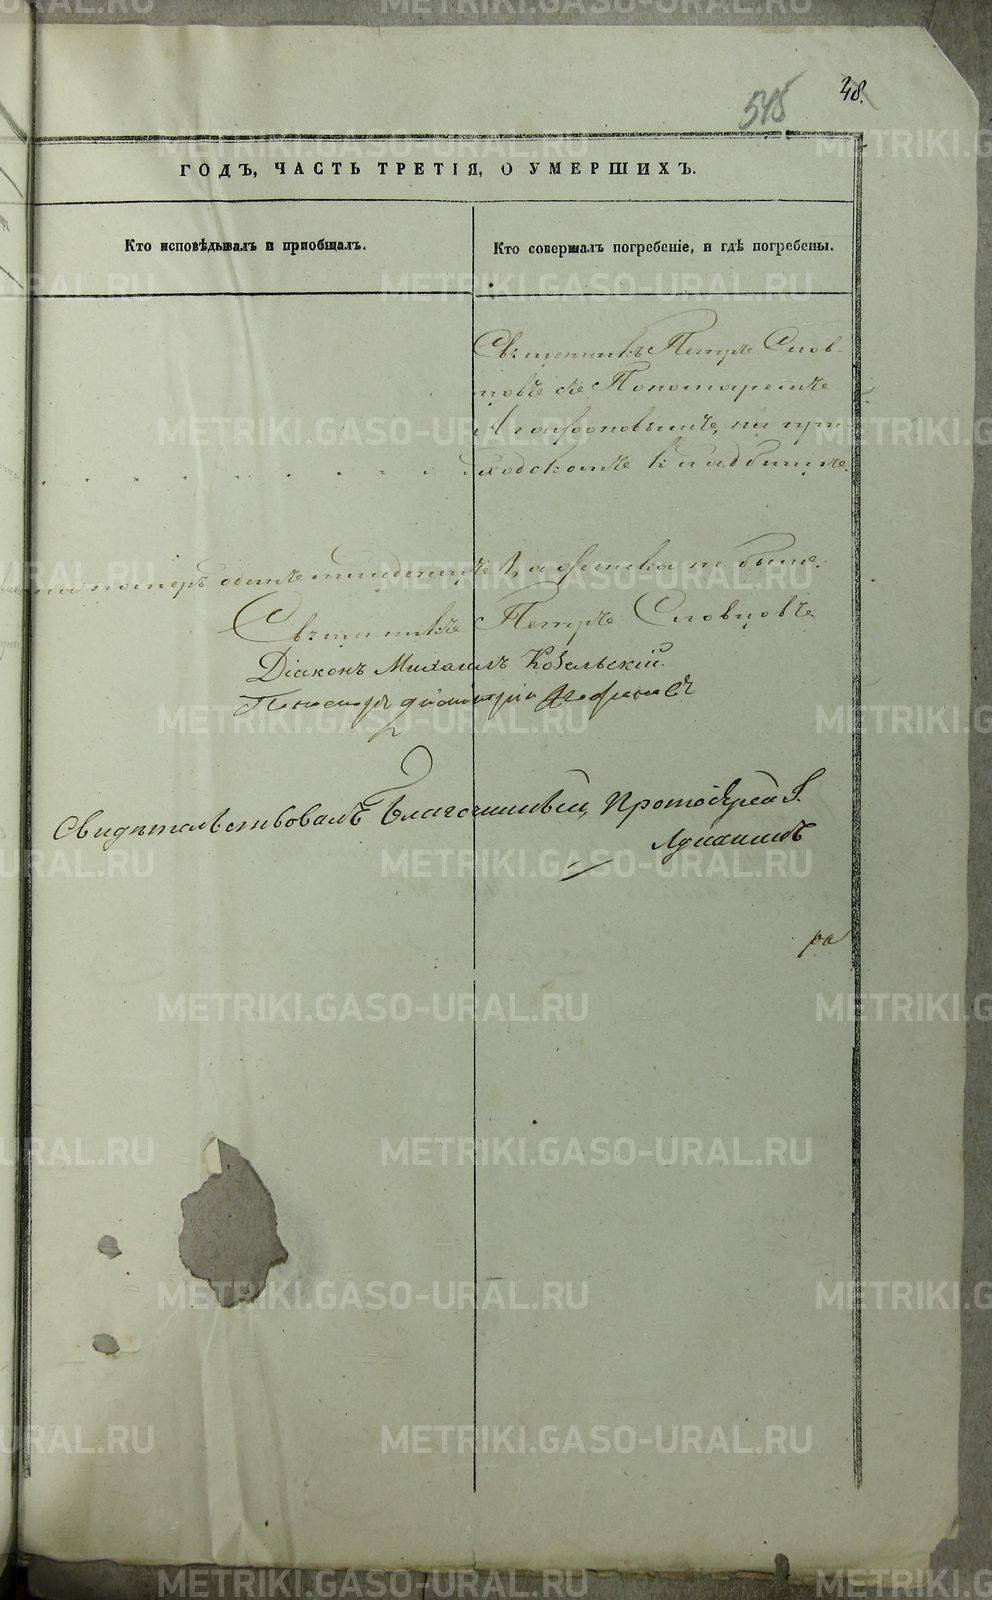 515
48.
ГОДЪ, ЧАСТЬ ТРЕТІЯ, О УМЕРШИХЪ.
Кто исповѣдывалъ и пріобщалъ.
Кто совершалъ погребеніе, и гдѣ погребены.
Священникъ Петръ Слов-
цовъ съ Пономаремъ
Агафоновымъ, на при
ходскомъ кладбищѣ.
померъ одинъ младенецъ 1, а женска не было.
Священникъ Петръ Словцовъ
Діаконъ Михаилъ Козельскій.
Пономарь Димитрій Агафоновъ
Свидѣтельствовалъ Благочинный, Протоіерей
METRIKI.GASO-URAL.RU